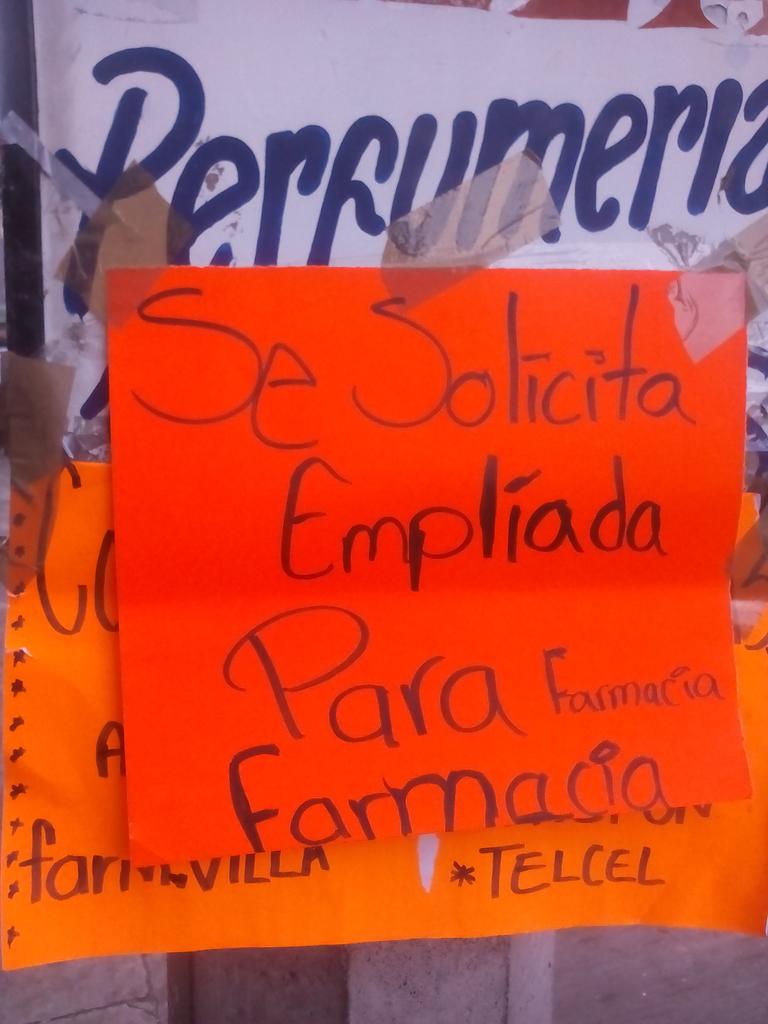 Perfumeria
Se Solicita
Empliada
Para Farmacia
Farmacia
*TELCEL